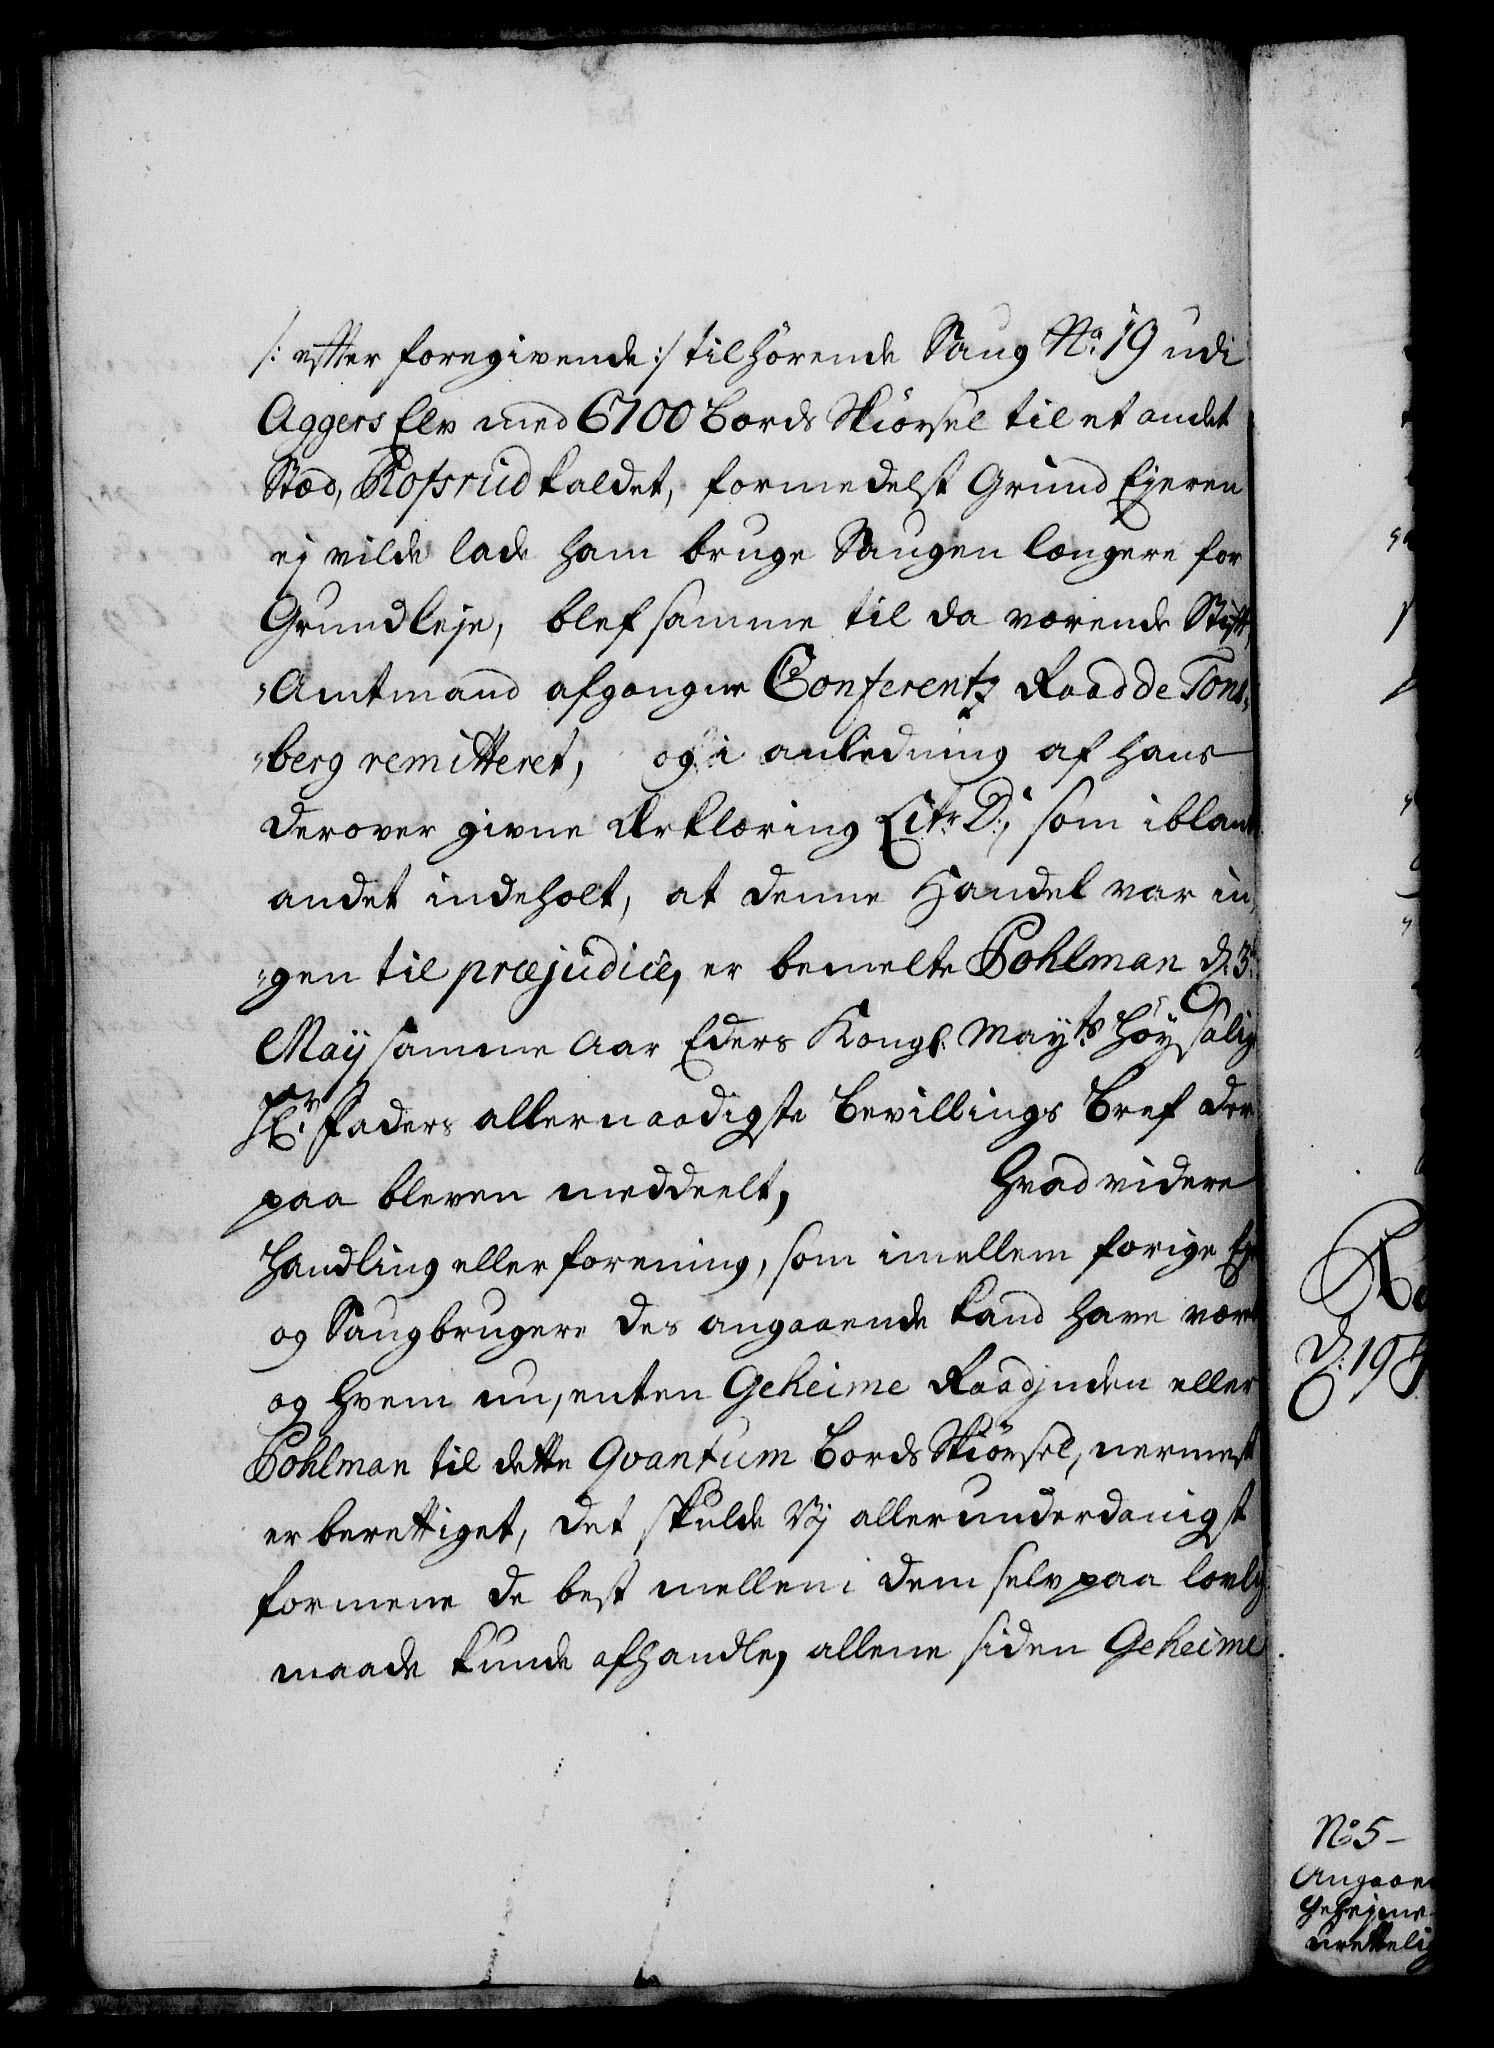 /: efter foregivende :/ tilhörende Saug No. 19 udi
Aggers Elv med 6700 Bords Skiörsel til et andet
Stæd, Rofsrud kaldet, formedelst Grund Ejeren
ej vilde lade ham bruge Saugen længere for
Grundleje, blef samme til da værende Stift
"Amtmand afgangne Conferentz Raad de Tons-
"berg remitteret, og i anledning af hans
derover givne Erklæring Litr D:, som iblant
andet indeholt, at denne Handel var in-
"gen til præjudice, er bemelte Pohlman d: 3.
Maij samme Aar Eders Kongl. Mayts Höysalig
Hr. Faders allernaadigste Bevillings Bref der
paa bleven meddeelt, Hvad videre
Handling eller forening, som imellem forige Eje
og Saugbrugere des angaaende kand have været
og hvem nu, enten Geheime Raadinden eller
Pohlman til dette Qvantum Bords Skiörsel, nermest
er berettiget, det skulde Vij allerunderdanigst
formene de best mellem dem selv paa lovlig
maade kunde afhandle, allene siden Geheime
d: 19
No 5 -
Angaaen
Geheime